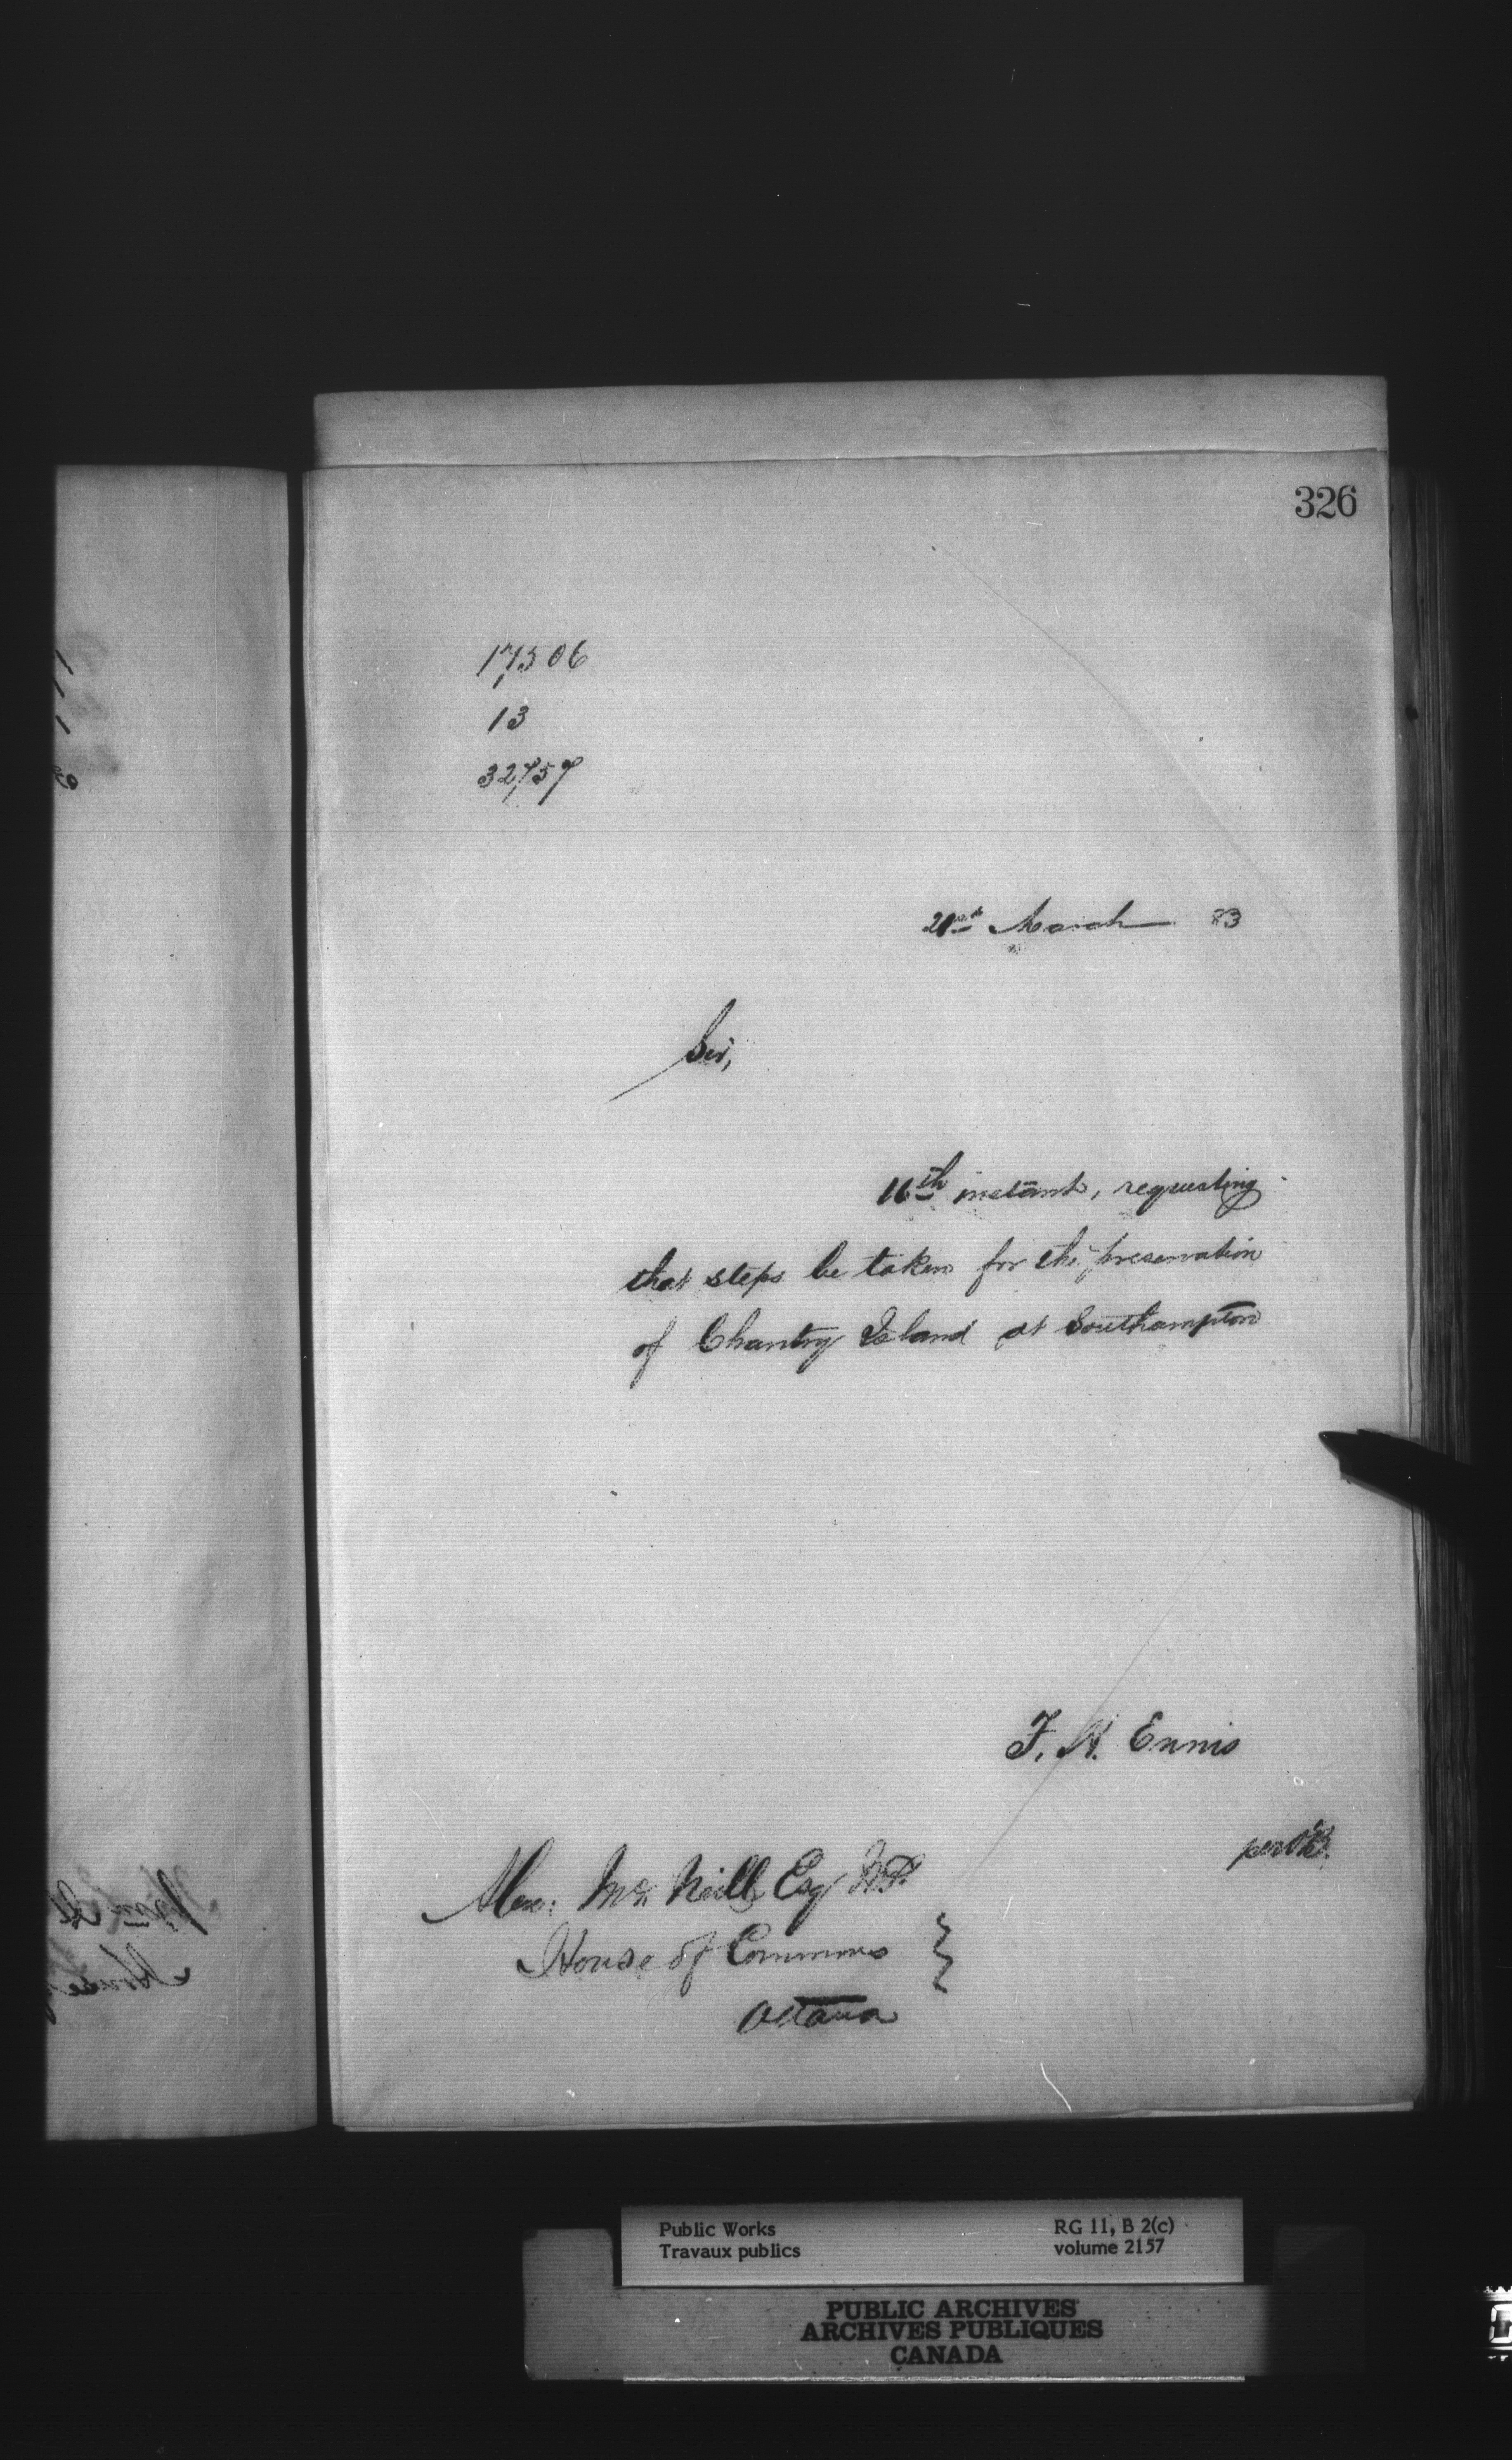 326
17,506
13
32,757
21st March 83
Sir,
16th instant, requesting
that steps be taken for the preservation
of Chantry Island at Southampton
F. H. Ennis
Alex: McNeill Esq M.P.
House of Commons
Ottawa
Public Works
Travaux publics
RG 11, B 2(c)
volume 2157
PUBLIC ARCHIVES
ARCHIVES PUBLIQUES
CANADA